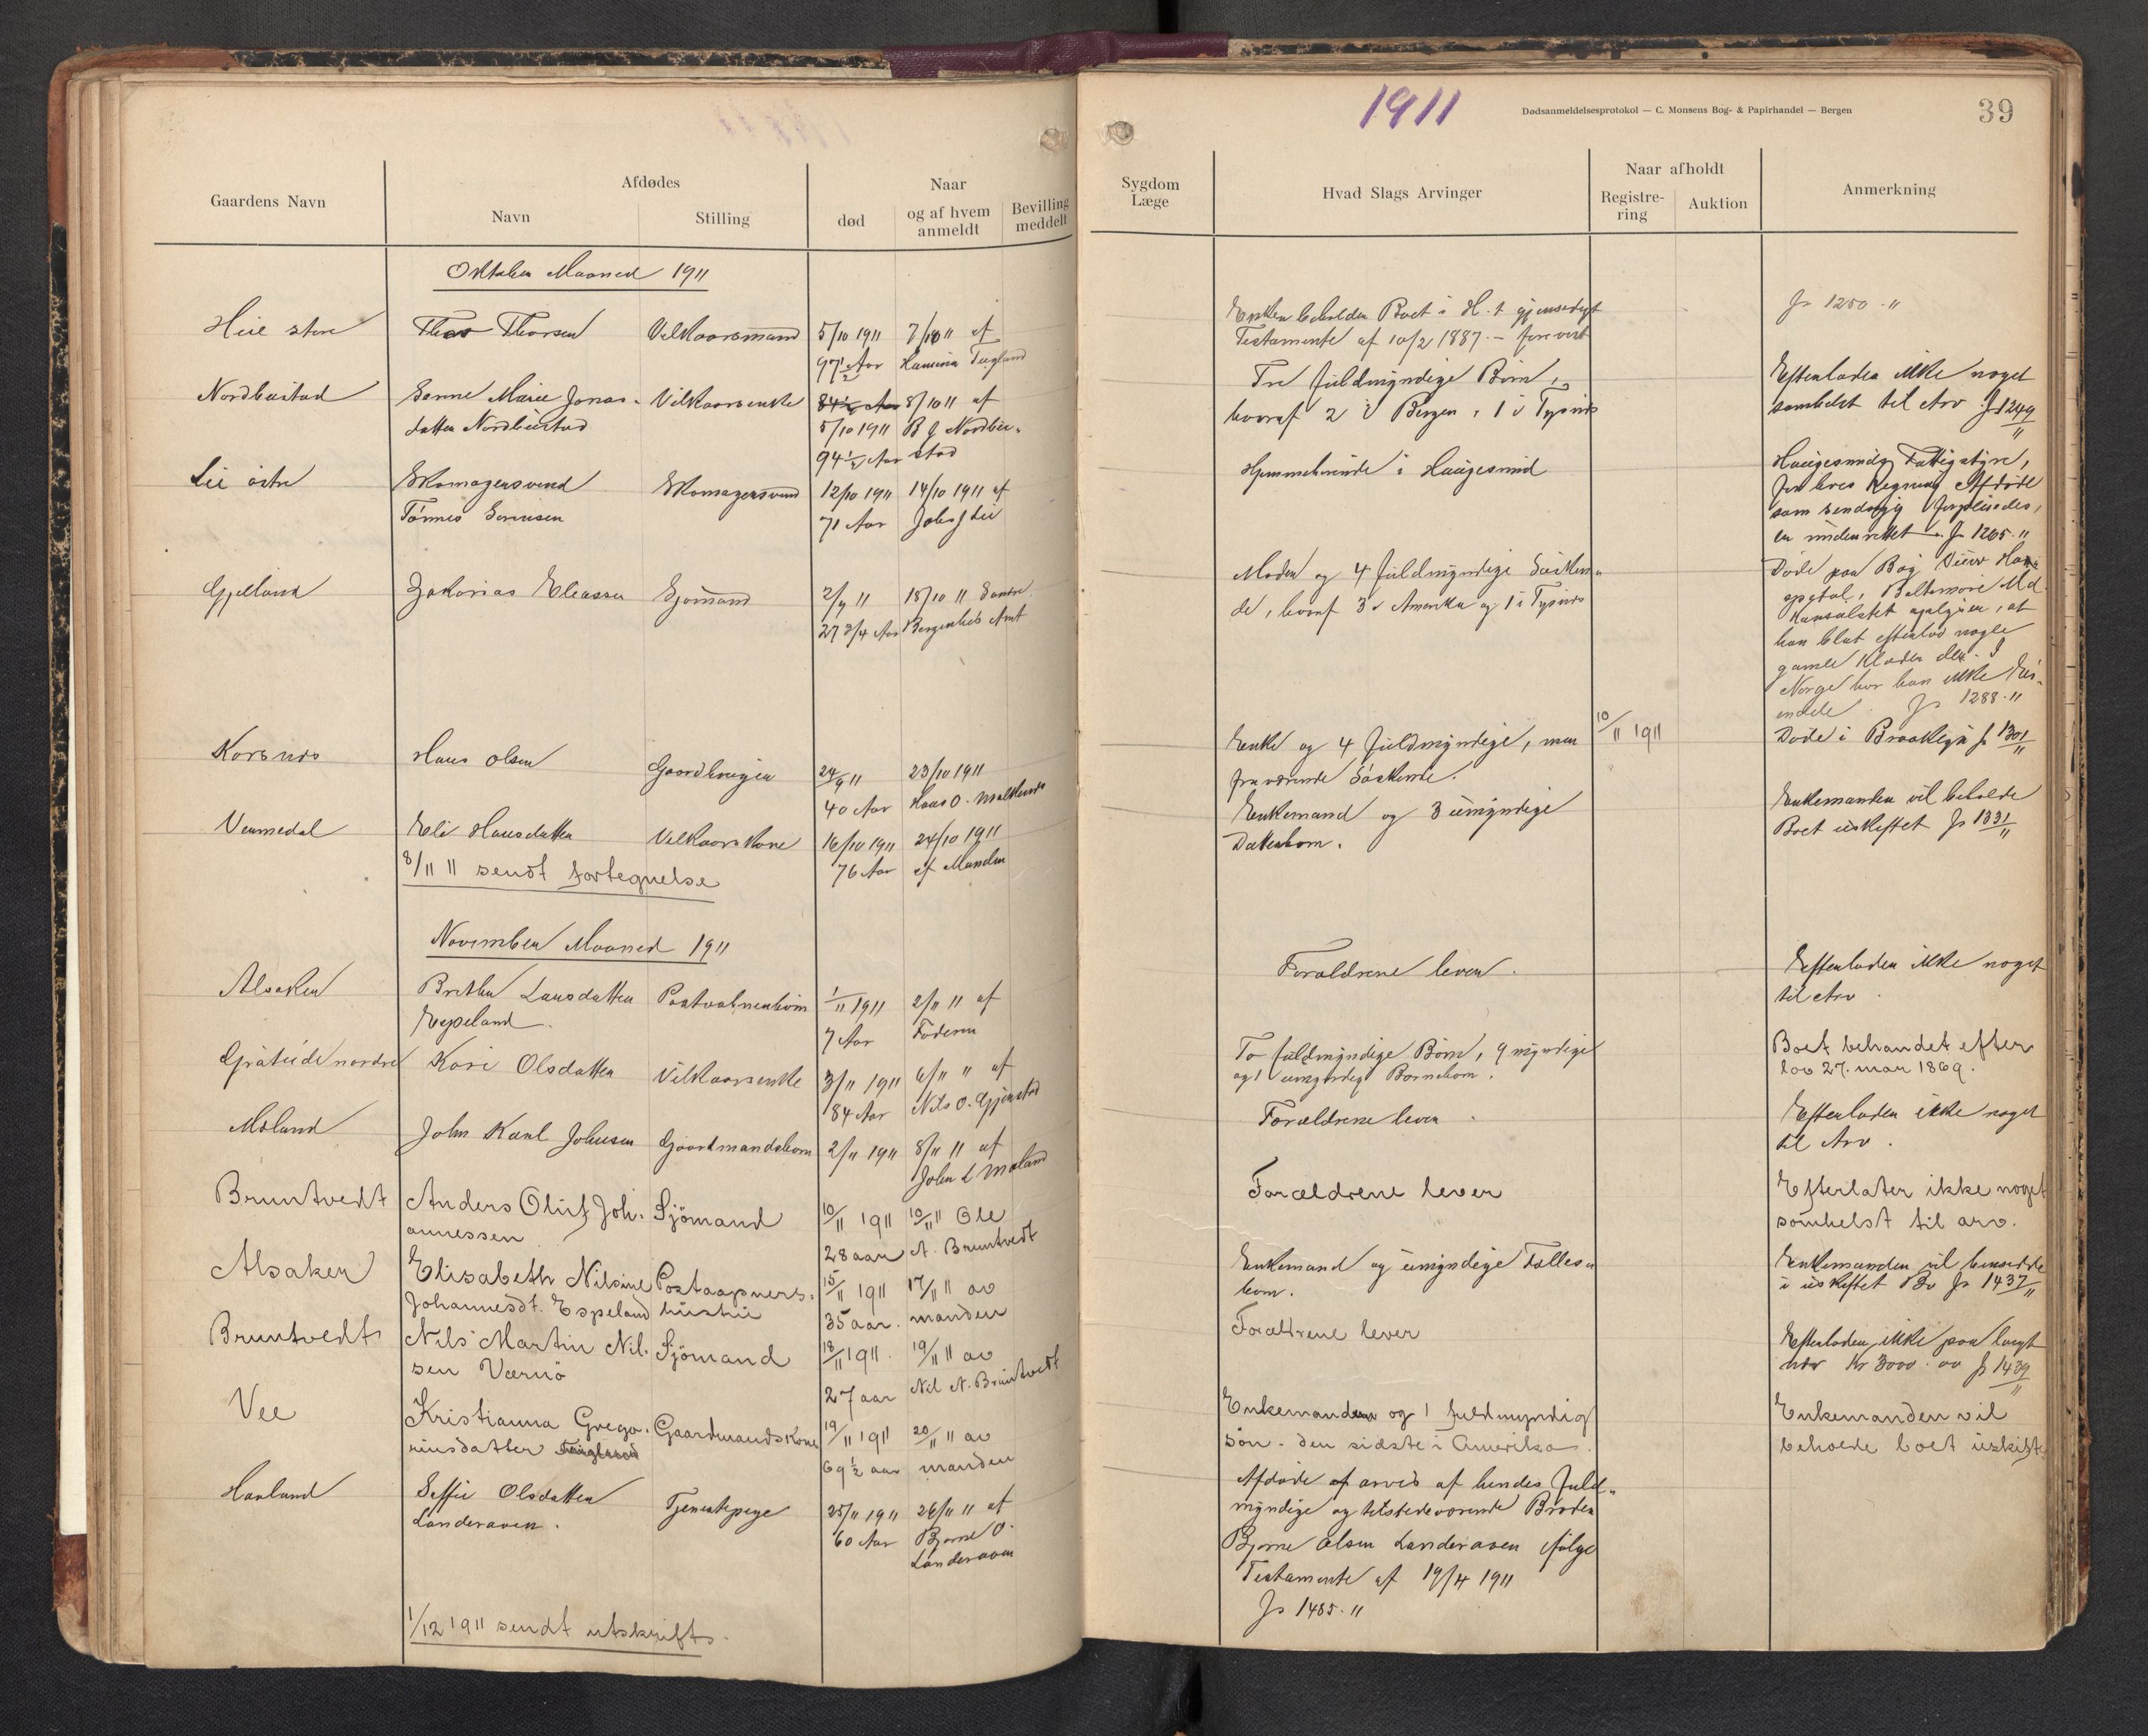 1911
Dødsanmeldelsesprotokol — C. Monsens Bog- & Papirhandel — Bergen
39
Gaardens Navn
Afdødes
Navn
Stilling
Naar
død
og af hvem anmeldt
Bevilling meddelt
Sygdom
Læge
Hvad Slags Arvinger
Naar afholdt
Registrering
Auktion
Anmerkning
Oktober Maaned 1911
Thorsen Vilkaarsmand 5/10 1911 7/10 11 af
97½ Aar
Enken beholder Boet i H. t gjensidigt
Testamente af 10/2 1887.
Jr 1250 "
Marie Jonas- Vilkaarsenke 8/10 11 af
datter 5/10 1911
94½ Aar stad
Tre fuldmyndige Børn,
hvoraf 2 i Bergen, 1 i Tysnes
Efterlader ikke noget
somhelst til Arv Jr 1249
"
Lie østre Skomagersvend Skomagersvend 12/10 1911 14/10 1911 af
71 Aar Lie
Hjemmehørende i Haugesund
Haugesunds Fattigstyre,
for hvis Regning Afdøde
er underrettet. Jr 1265 "
Gjelland Zakarias Eliassen Sjømand 2/9 11 18/10 11 Søndre
27 3/4 Aar Bergenhus Amt
Moder og 4 fuldmyndige Søsken-
de, hvoraf 3 i Amerika og 1 i Tysnes
Døde paa Bay View Ho-
spital, Baltimore Md.
Konsulatet opgiver, at
han blot efterlod nogle
gamle Klæder der. I
Norge har han ikke Ei-
endele Jr 1288 "
Korsnes Hans Olsen Gaardbruger 24/9 11 23/10 1911
40 Aar Hans O.
Enke og 4 fuldmyndige, men
fraværende Søskende.
10/11 1911
Døde i Brooklyn Jr 1301
"
Vennedal Eli Hansdatter Vilkaarskone 16/10 1911 24/10 1911
76 Aar af Manden
Enkemand og 3 umyndige
Datterbørn.
Enkemanden vil beholde
Boet uskiftet Jr 1331
"
8/11 11 sendt fortegnelse
November Maaned 1911
Alsaker Brithe Larsdatter 1/11 1911 2/11 11 af
Espeland. 7 Aar Faderen
Forældrene lever.
Efterlader ikke noget
til Arv.
nordre Kari Olsdatter Vilkaarsenke 3/11 1911 6/11 " af
84 Aar Nils O.
To fuldmyndige Børn, 9 myndige
og 1 umyndig Børnebørn.
Boet behandet efter
lov 27. mar 1869.
Moland John Karl Johnsen Gaardmandsbarn 2/11 1911 8/11 11 af
John L Moland
Forældrene lever.
Efterlader ikke noget
til Arv.
Bruntvedt Anders Oluf Joh- Sjömand 10/11 1911 10/11 11 Ole
annessen 28 aar A. Bruntvedt
Forældrene lever
Efterlater ikke noget
somhelst til arv.
Alsaker Elisabeth Nilsine Postaapners- 15/11 1911 17/11 11 av
Johannesdt. Espeland hustru 35 aar. manden
Enkemand og umyndige Fælles-
børn.
Enkemanden vil hensidde
i uskiftet Bo Jr 1437
"
Bruntvedt Nils Martin Nil- Sjömand 18/11 1911. 19/11 11 av
sen Værnö 27 aar Nil N. Bruntvedt
Forældrene lever
Efterlader ikke paa langt
nær Kr 3000.00 Jr 1439
"
Vee Kristianna Grego- Gaardmandskone 19/11 1911 20/11 11 av
riusdatter 69½ aar manden
Enkemanden og 1 fuldmyndig
sön. den sidste i Amerika.
Enkemanden vil
beholde boet uskifte
Havland Olsdatter Tjenestepige 25/11 1911 26/11 11 af
Landeraaen. 60 Aar Bjørne O.
Landeraaen
Afdøde arves af hendes fuld-
myndige og tilstedeværende Broder
Bjørne Olsen Landeraaen ifølge
Testamente af 19/4 1911
Jr 1485 "
1/12 1911 sendt utskrift.